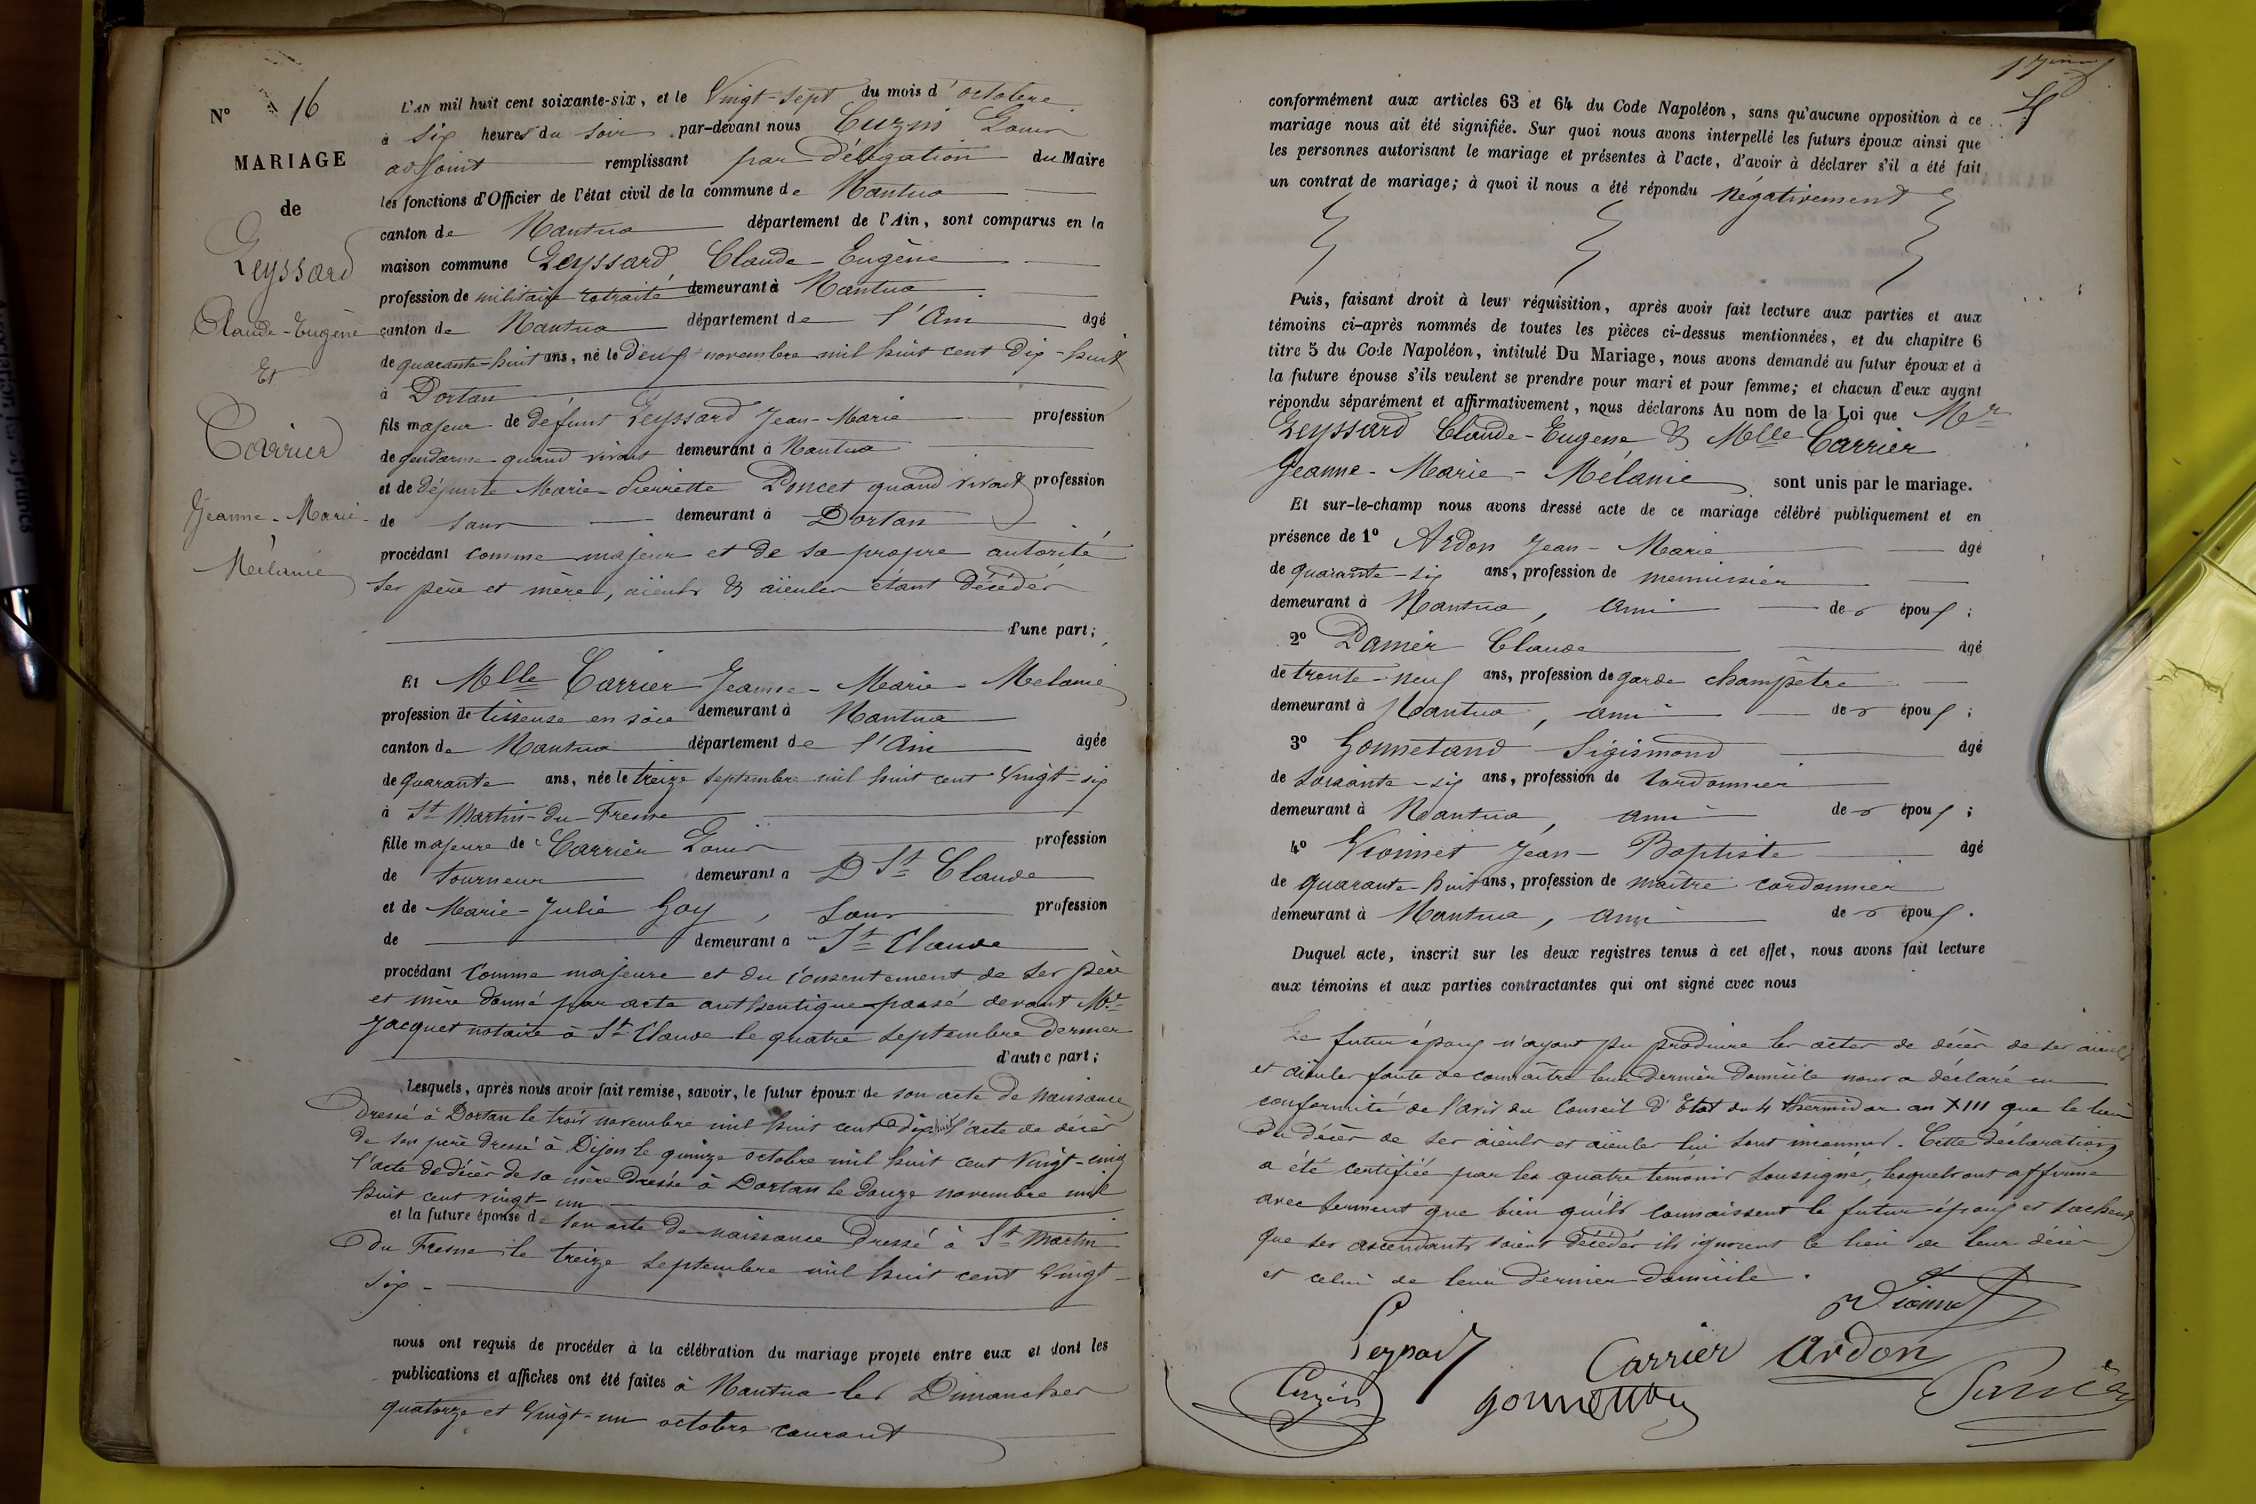 N° 16
MARIAGE
de
Leyssard
Claude-Eugène
Et
Carrier
Jeanne-Marie-
Mélanie
L'AN mil huit cent soixante-six, et le Vingt-sept du mois d'octobre
à six heures du soir par-devant nous Cuzin Louis
adjoint remplissant par délégation du Maire
les fonctions d'Officier de l'état civil de la commune de Nantua
canton de Nantua département de l'Ain, sont comparus en la
maison commune Leyssard Claude-Eugène
profession de militaire retraité demeurant à Nantua
canton de Nantua département de l'Ain âgé
de quarante-huit ans, né le deux novembre mil huit cent dix-huit
à Dortan
fils majeur de défunt Leyssard Jean-Marie profession
de gendarme quand vivait demeurant à Nantua
et de défunte Marie-Pierrette Poncet quand vivait profession
de sans demeurant à Dortan
procédant comme majeur et de sa propre autorité
ses père et mère, aïeuls & aïeules étant décédés
d'une part;
Et Melle Carrier Jeanne-Marie-Mélanie
profession de tisseuse en soie demeurant à Nantua
canton de Nantua département de l'Ain âgée
de quarante ans, née le treize septembre mil huit cent vingt-six
à St Martin-du-Fresne
fille majeure de Carrier Louis profession
de tourneur demeurant à St Claude
et de Marie-Julie Goy, sans profession
de demeurant à St Claude
procédant comme majeure et du consentement de ses père
et mère donné par acte authentique passé devant Me
Jacquet notaire à St Claude le quatre septembre dernier
d'autre part;
Lesquels, après nous avoir fait remise, savoir, le futur époux de son acte de naissance
dressé à Dortan le trois novembre mil huit cent dix-huit l'acte de décès
de son père dressé à Dijon le quinze octobre mil huit cent vingt-cinq
l'acte de décès de sa mère dressé à Dortan le douze novembre mil
huit cent vingt-un
et la future épouse de son acte de naissance dressé à St Martin
du Fresne le treize septembre mil huit cent vingt-
six
nous ont requis de procéder à la célébration du mariage projeté entre eux et dont les
publications et affiches ont été faites à Nantua les Dimanches
quatorze et vingt-un octobre courant
conformément aux articles 63 et 64 du Code Napoléon, sans qu'aucune opposition à ce
mariage nous ait été signifiée. Sur quoi nous avons interpellé les futurs époux ainsi que
les personnes autorisant le mariage et présentes à l'acte, d'avoir à déclarer s'il a été fait
un contrat de mariage; à quoi il nous a été répondu Négativement
Puis, faisant droit à leur réquisition, après avoir fait lecture aux parties et aux
témoins ci-après nommés de toutes les pièces ci-dessus mentionnées, et du chapitre 6
titre 5 du Code Napoléon, intitulé Du Mariage, nous avons demandé au futur époux et à
la future épouse s'ils veulent se prendre pour mari et pour femme; et chacun d'eux ayant
répondu séparément et affirmativement, nous déclarons Au nom de la Loi que Mr
Leyssard Claude-Eugène & Melle Carrier
Jeanne-Marie-Mélanie sont unis par le mariage.
Et sur-le-champ nous avons dressé acte de ce mariage célébré publiquement et en
présence de 1° Ardon Jean-Marie âgé
de quarante-six ans, profession de menuisier
demeurant à Nantua, ami des époux;
2° Panier Claude âgé
de trente-neuf ans, profession de garde champêtre
demeurant à Nantua, ami des époux;
3° Gonnetand Sigismond âgé
de soixante-six ans, profession de cordonnier
demeurant à Nantua, ami des époux;
4° Vionnet Jean-Baptiste âgé
de quarante-huit ans, profession de maître cordonnier
demeurant à Nantua, ami des époux.
Duquel acte, inscrit sur les deux registres tenus à cet effet, nous avons fait lecture
aux témoins et aux parties contractantes qui ont signé avec nous
Le futur époux n'ayant pu produire les actes de décès de ses aïeuls
et aïeules faute de connaître leur dernier domicile nous a déclaré en
conformité de l'avis du Conseil d'Etat du 4 thermidor an XIII que le lieu
du décès de ses aïeuls et aïeules lui sont inconnus. Cette déclaration
a été certifiée par les quatre témoins soussignés, lesquels ont affirmé
avec serment que bien qu'ils connaissent le futur époux et sachent
que ses ascendants soient décédés ils ignorent le lieu de leur décès
et celui de leur dernier domicile.
Vionnet
Leyssard
Carrier
Ardon
Cuzin
Panier